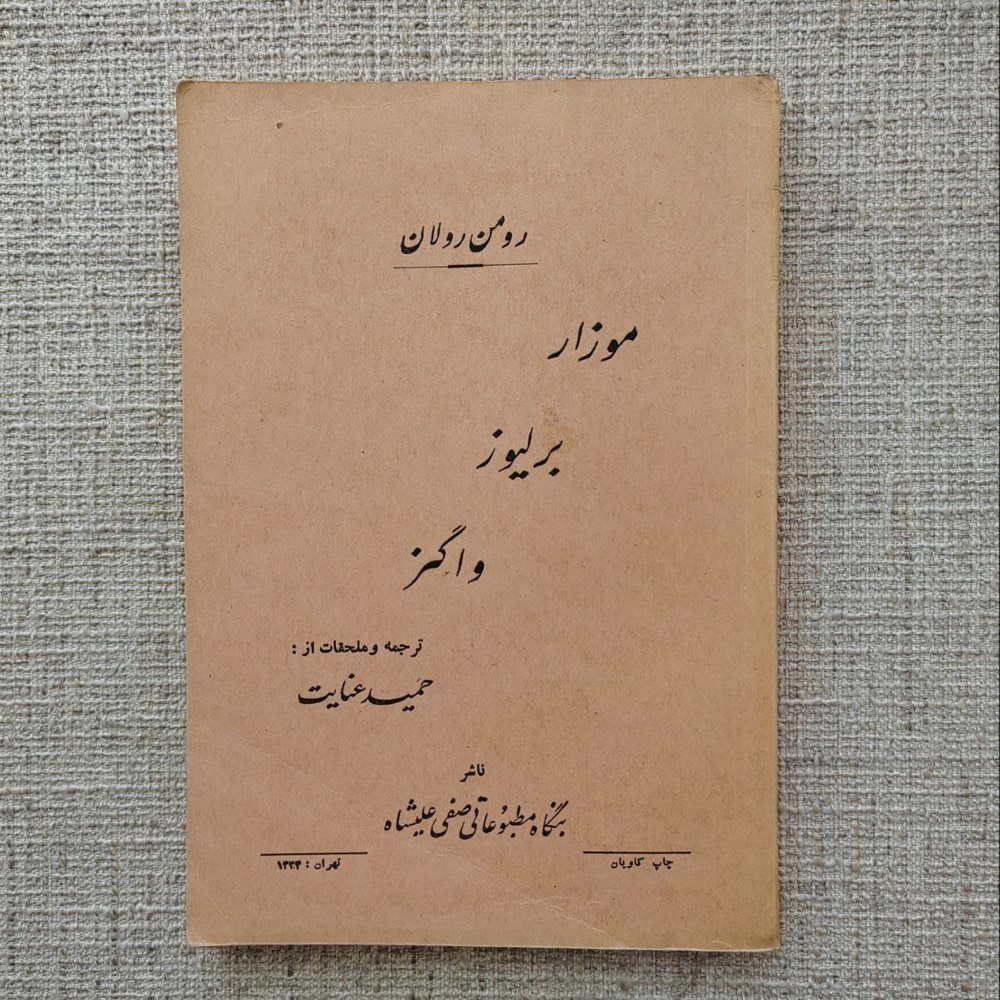 رومن رولان
موزار
برلیوز
واگنر
ترجمه و ملحقات از :
حمید عنایت
ناشر
بنگاه مطبوعاتی صفی علیشاه
چاپ کاویان
تهران : ۱۳۳۴